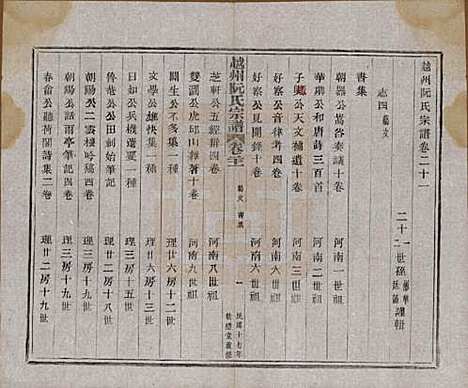 越州阮氏宗譜卷二十一
志四 藝文
二十一世孫
書集
朝器公嵩岑奏議十卷 河南一世祖
華瑞公和唐詩三百首 河南二世祖
子公天文補遺十卷 河南三世祖
好察公音律考四卷 河南六世祖
好察公見聞錄十卷 河南六世祖
越州阮氏宗譜 卷二十一 藝文 書集 一 民國十七年
芝軒公五經解四卷 河南八世祖
雙湖公虎邱山雜著十卷 河南九世祖
闇生公不多集一卷 理廿二房十七世
文學公纏快集一卷 理廿六房十三世
日如公兵機透露一卷 理三房十五世
魯菴公臺四劄記一卷 理廿二房十八世
朝陽公二雲樓吟稿四卷 理三房十九世
朝陽公話雨亭筆記四卷 理三房十九世
春畬公聽荷閣詩集二卷 理廿二房十九世